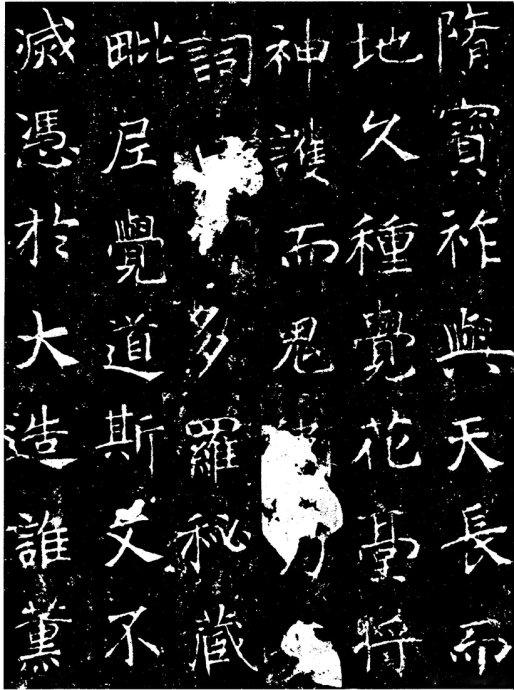 隋寶祚與天長而
地久種覺花臺將
神護而鬼
詞多羅秘藏
毗尼覺道斯文不
滅憑於大造誰薰